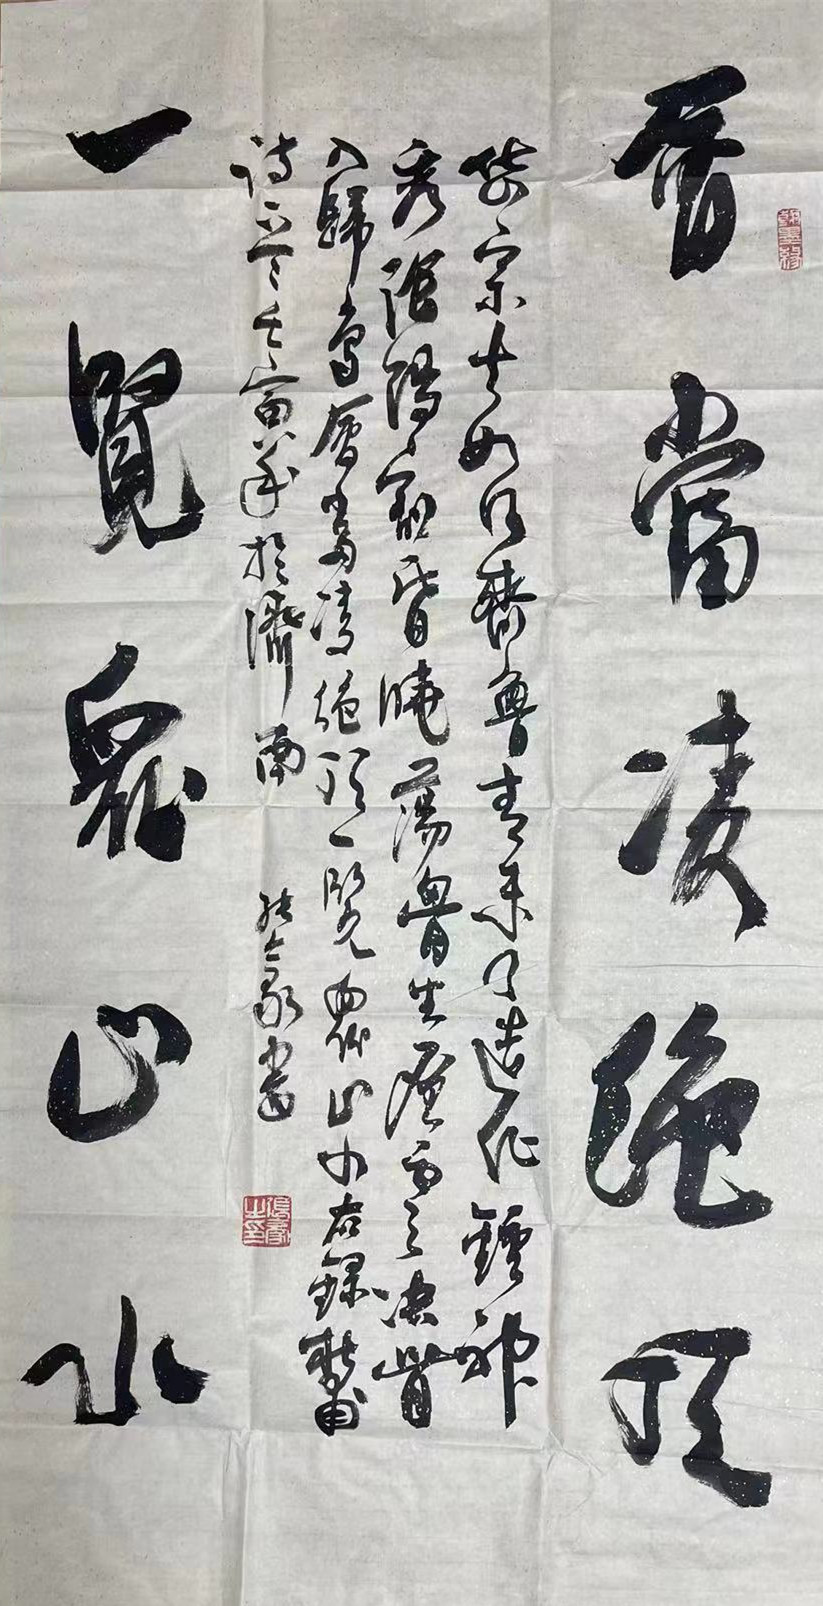 會當凌绝顶
岱宗夫如何齊魯青未了造化鍾神
秀陰陽割昏曉蕩胸生層雲決眥
入歸鳥會當凌绝顶一覽眾山小右録杜甫
诗一首壬寅年於濟南
一覽眾山小